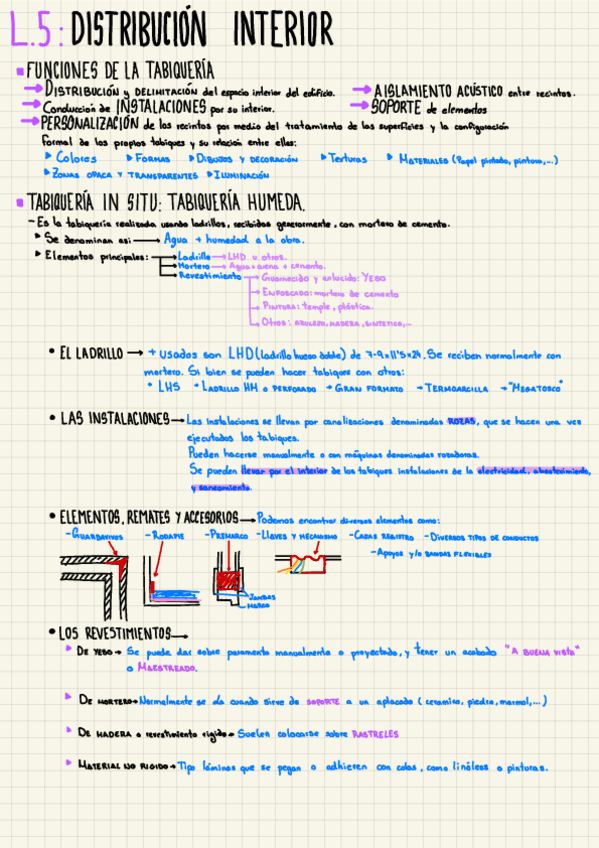 L.5: DISTRIBUCIÓN INTERIOR
FUNCIONES DE LA TABIQUERÍA
→ DISTRIBUCIÓN y DELIMITACIÓN del espacio interior del edificio. → AISLAMIENTO ACÚSTICO entre recintos.
→ Conducción de INSTALACIONES por su interior. → SOPORTE de elementos
→ PERSONALIZACIÓN de los recintos por medio del tratamiento de las superficies y la configuración
formal de los propios tabiques y su relación entre ellos:
Colores FORMAS DIBUJOS Y DECORACIÓN Texturas MATERIALES (Papel pintado, pintura,...)
ZONAS OPACA Y TRANSPARENTES ILUMINACIÓN
TABIQUERÍA IN SITU: TABIQUERÍA HUMEDA.
- Es la tabiquería realizada usando ladrillos, recibidos generalmente, con mortero de cemento.
Se denominan así → Agua + humedad a la obra.
Elementos principales: → Ladrillo → LHD u otros.
→ Mortero → Agua + arena + cemento.
→ Revestimiento → Guarnecido y enlucido: YESO
→ ENFOSCADO: mortero de cemento
→ PINTURA: temple, plástica.
→ Otros: AZULEJO, MADERA, SINTETICO,...
• EL LADRILLO → + usados son LHD (ladrillo hueco doble) de 7-9x11'5x24. Se reciben normalmente con
mortero. Si bien se pueden hacer tabiques con otros:
• LHS → LADRILLO HM o PERFORADO → GRAN FORMATO → TERMOARCILLA → "MEGATOSCO"
• LAS INSTALACIONES → Las instalaciones se llevan por canalizaciones denominadas ROZAS, que se hacen una vez
ejecutados los tabiques.
Pueden hacerse manualmente o con máquinas denominadas rozadoras.
Se pueden llevar por el interior de los tabiques instalaciones de la electricidad, abastecimiento,
y saneamiento.
• ELEMENTOS, REMATES Y ACCESORIOS → Podemos encontrar diversos elementos como:
- GUARDAVIVOS - RODAPIE - PREMARCO - LLAVES Y MECANISMO - CAJAS REGISTRO - DIVERSOS TIPOS DE CONDUCTOS
- Apoyos y/o BANDAS FLEXIBLES
JAMBAS
MARCO
• LOS REVESTIMIENTOS →
DE YESO → Se puede dar sobre paramento manualmente o proyectado, y tener un acabado "A BUENA VISTA"
o MAESTREADO.
DE MORTERO → Normalmente se da cuando sirve de SOPORTE a un aplacado (ceramico, piedra, marmol,...)
DE MADERA o revestimiento rigido → Suelen colocarse sobre RASTRELES
MATERIAL NO RIGIDO → Tipo láminas que se pegan o adhieren con colas, como linóleos o pinturas.